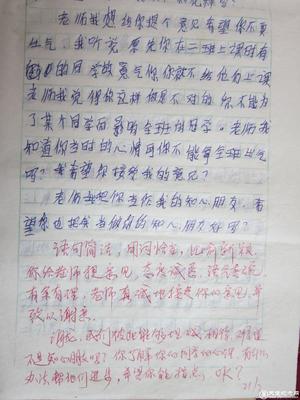 老师我想给你提个意见有望你不要
生气。我听说原先你在三班上课时有
的同学故意气你你就不给他们上课
老师我觉得你这样做是不对的你不能为
了某个同学而影响全班的同学。老师我
知道你当时的心情可你不能拿全班出气
吗?我希望你接受我的意见?
老师我把你当作我的知心朋友,希
望你也把我当做你的知心朋友好吗?
语句简洁,用词恰当,比喻新颖
你给老师提意见,态度诚恳,语言委婉,
有条有理,老师真诚地接受你的意见,并
致以谢意。
谢谢,我们彼此能够坦诚相待,难道
不是知心朋友吗?你了解你们同学的心理,有什么
办法帮他们进步,希望你能指点,OK?
21/2